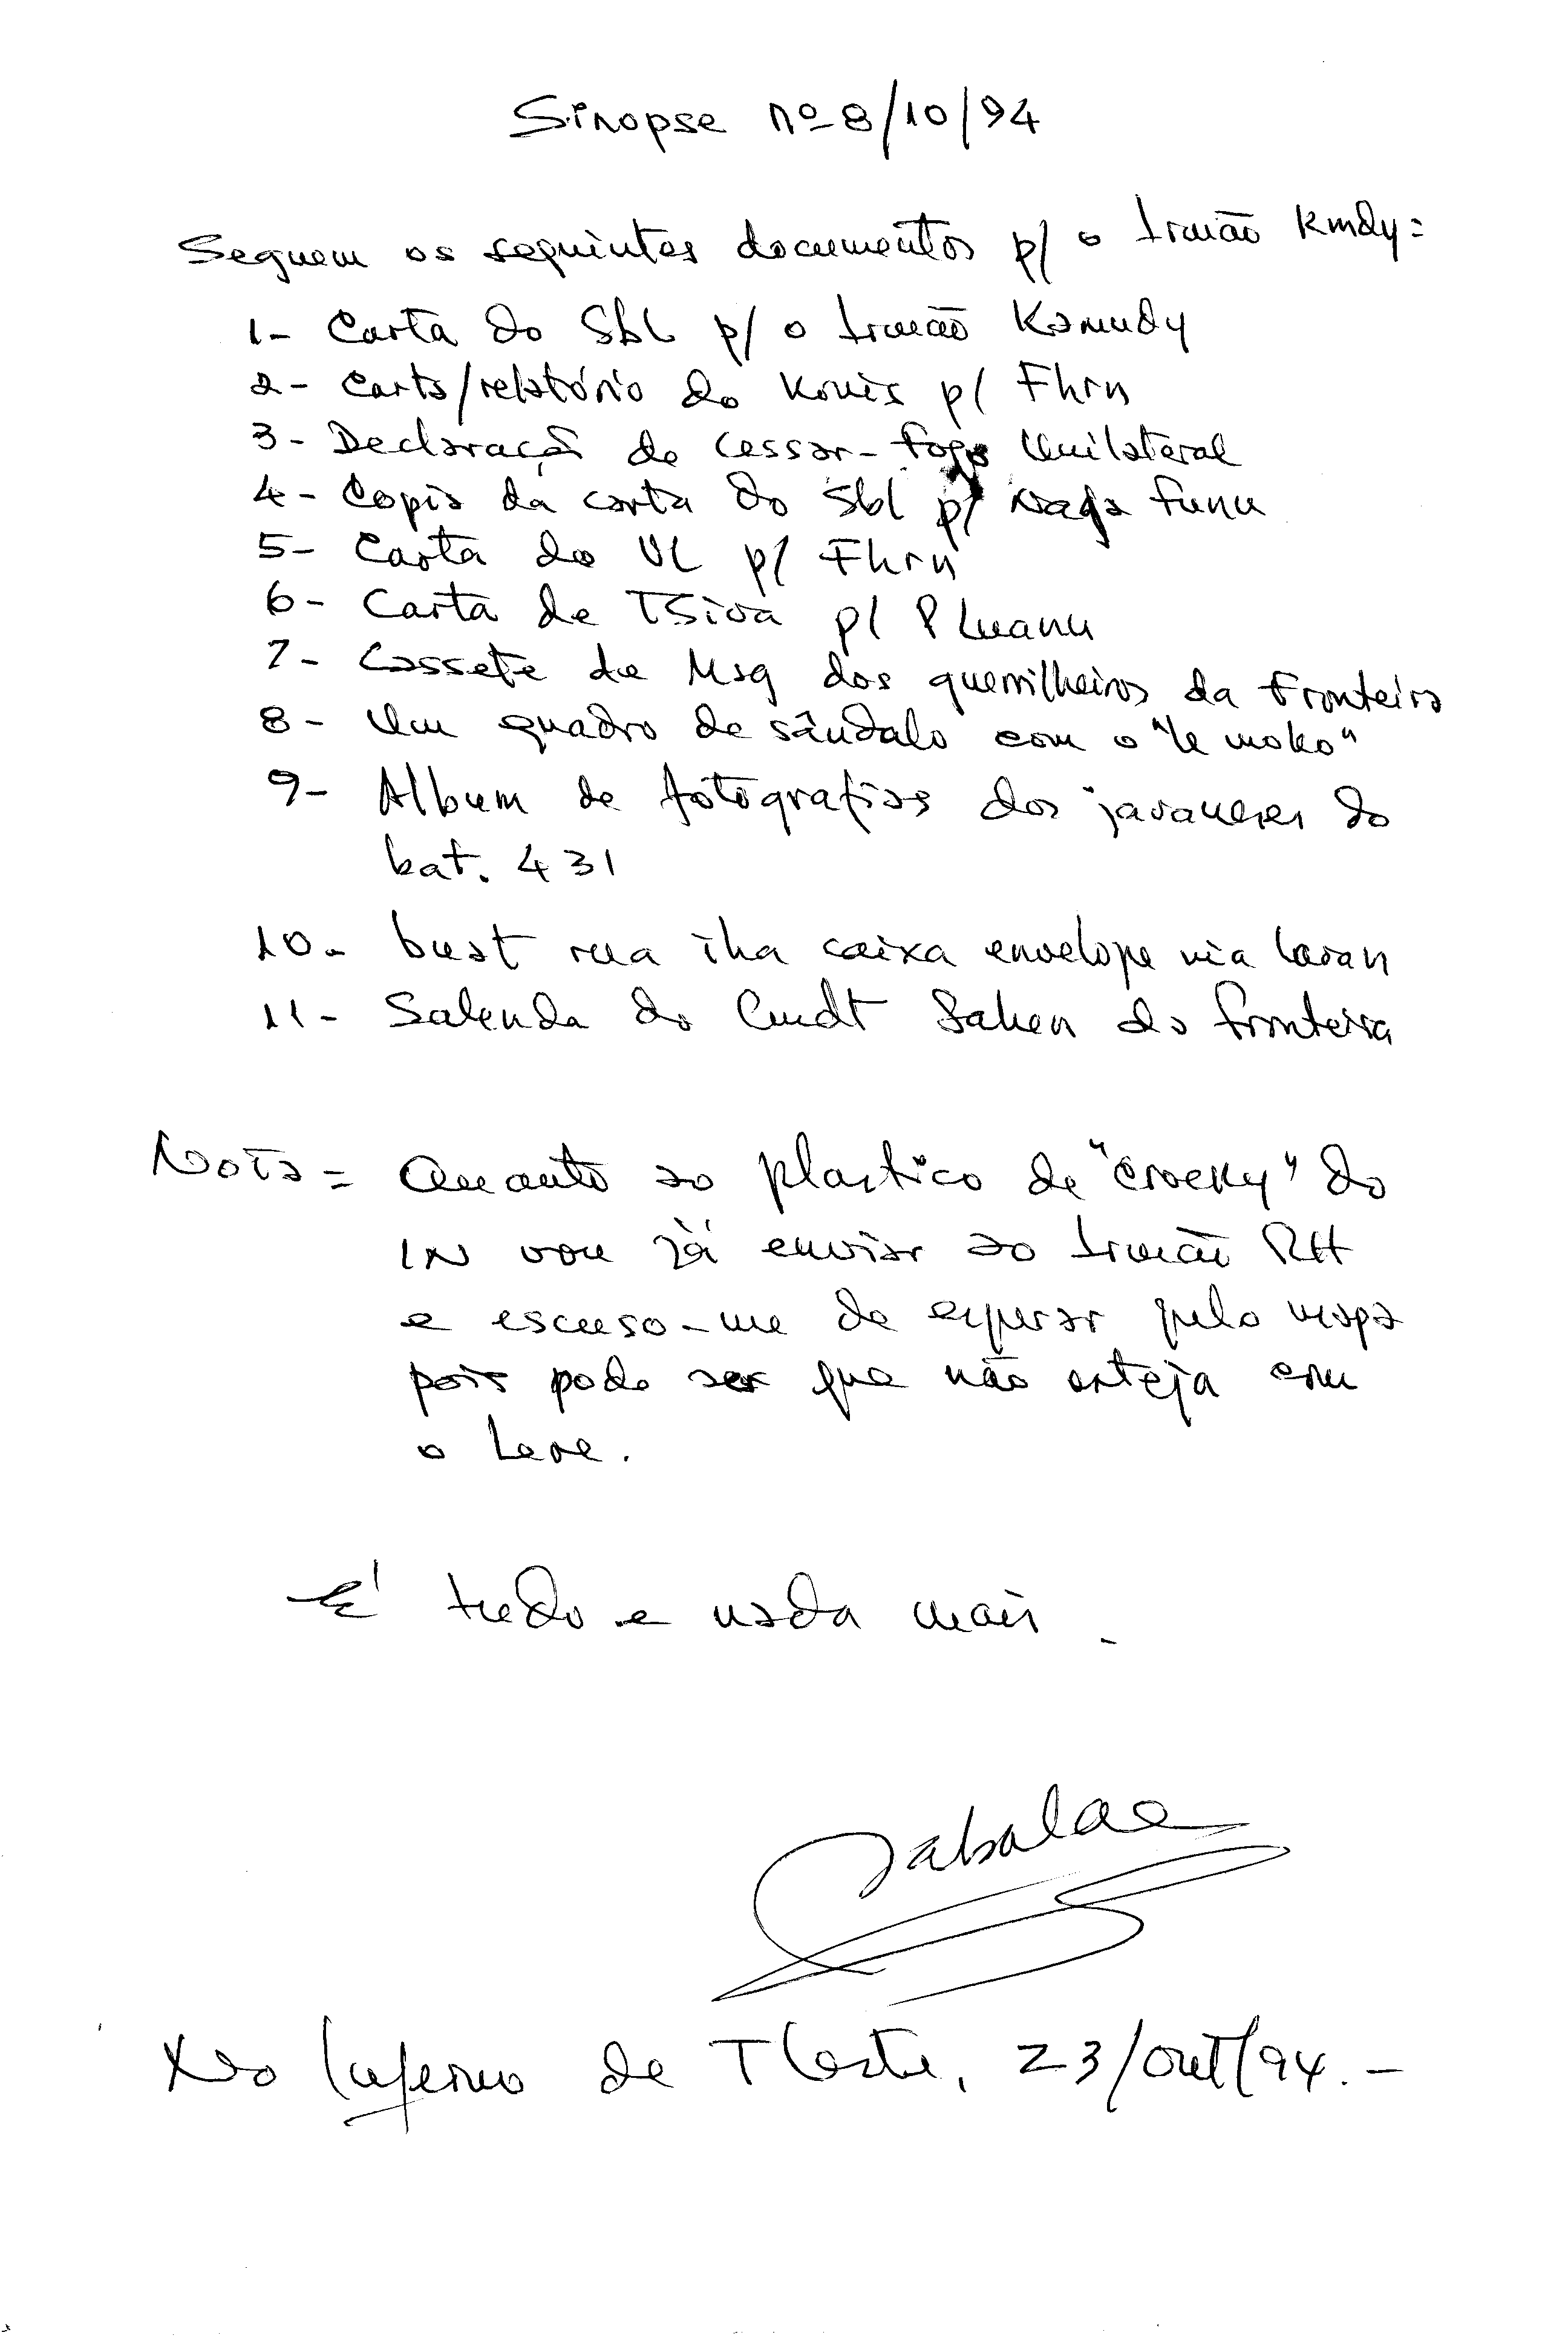 Sinopse nº 8/10/94
Seguem os seguintes documentos p/ o Irmão Kmdy:
1- Carta do Sbl p/ o Irmão Kamudy
2- Carta/relatório do Konis p/ Fhrn
3- Declaração de cessar-fogo Unilateral
4- Copia da carta do Sbl p/ Naga funu
5- Carta do UL p/ Fhrn
6- Carta de TSiva p/ P Luanu
7- Cassete de Msg dos guerrilheiros da Fronteira
8- Um quadro de sândalo com o "le moko"
9- Album de fotografias dos javaneses do
bat. 431
10- bust rua iha caixa envelope via Lavan
11- Salenda do Cmdt Saken da fronteira
Nota= Quanto ao plastico de "Crocky" do
IN vou já enviar ao Irmão RH
e escuso-me de esperar pelo mapa
pois pode ser que não esteja com
o Lere.
É tudo e nada mais.
Sabalae
No Inferno de TLeste, 23/out/94.-